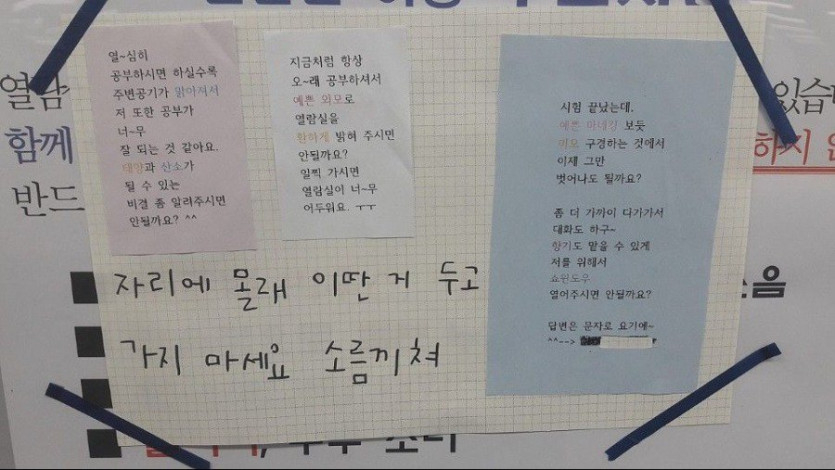 열~심히
공부하시면 하실수록
주변공기가 맑아져서
저 또한 공부가
너~무
잘 되는 것 같아요.
태양과 산소가
될 수 있는
비결 좀 알려주시면
안될까요? ^^
지금처럼 항상
오~래 공부하셔서
예쁜 외모로
열람실을
환하게 밝혀 주시면
안될까요?
일찍 가시면
열람실이 너~무
어두워요. ㅜㅜ
시험 끝났는데.
예쁜 마네킹 보듯
외모 구경하는 것에서
이제 그만
벗어나도 될까요?
좀 더 가까이 다가가서
대화도 하구~
향기도 맡을 수 있게
저를 위해서
쇼윈도우
열어주시면 안될까요?
답변은 문자로 요기에~
^^-->
자리에 몰래 이딴 거 두고
가지 마세요 소름끼쳐
열람
있습니
함께
하지 안
반드
소음